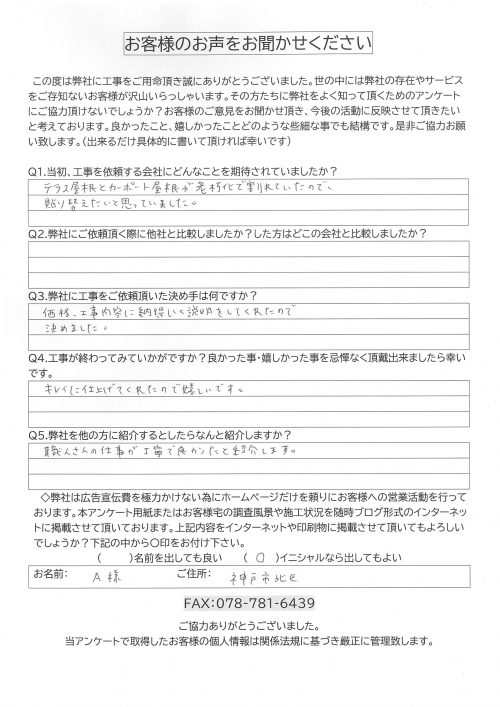 お客様のお声をお聞かせください
この度は弊社に工事をご用命頂き誠にありがとうございました。世の中には弊社の存在やサービス
をご存知ないお客様が沢山いらっしゃいます。その方たちに弊社をよく知って頂くためのアンケート
にご協力頂けないでしょうか？お客様のご意見をお聞かせ頂き、今後の活動に反映させて頂きたい
と考えております。良かったこと、嬉しかったことどのような些細な事でも結構です。是非ご協力お願
い致します。（出来るだけ具体的に書いて頂ければ幸いです）
Q1.当初、工事を依頼する会社にどんなことを期待されていましたか？
テラス屋根とカーポート屋根が老朽化で割れていたので、
貼り替えたいと思っていました。
Q2.弊社にご依頼頂く際に他社と比較しましたか？した方はどこの会社と比較しましたか？
Q3.弊社に工事をご依頼頂いた決め手は何ですか？
価格、工事内容に納得いく説明をしてくれたので
決めました。
Q4.工事が終わってみていかがですか？良かった事・嬉しかった事を忌憚なく頂戴出来ましたら幸い
です。
キレイに仕上げてくれたので嬉しいです。
Q5.弊社を他の方に紹介するとしたらなんと紹介しますか？
職人さんの仕事が丁寧で良かったと紹介します。
◇弊社は広告宣伝費を極力かけない為にホームページだけを頼りにお客様への営業活動を行って
おります。本アンケート用紙またはお客様宅の調査風景や施工状況を随時ブログ形式のインターネッ
トに掲載させて頂いております。上記内容をインターネットや印刷物に掲載させて頂いてもよろしい
でしょうか？下記の中から〇印をお付け下さい。
（　　）名前を出しても良い　（ ○ ）イニシャルなら出してもよい
お名前：　A様　ご住所：　神戸市北区
FAX：078-781-6439
ご協力ありがとうございました。
当アンケートで取得したお客様の個人情報は関係法規に基づき厳正に管理致します。